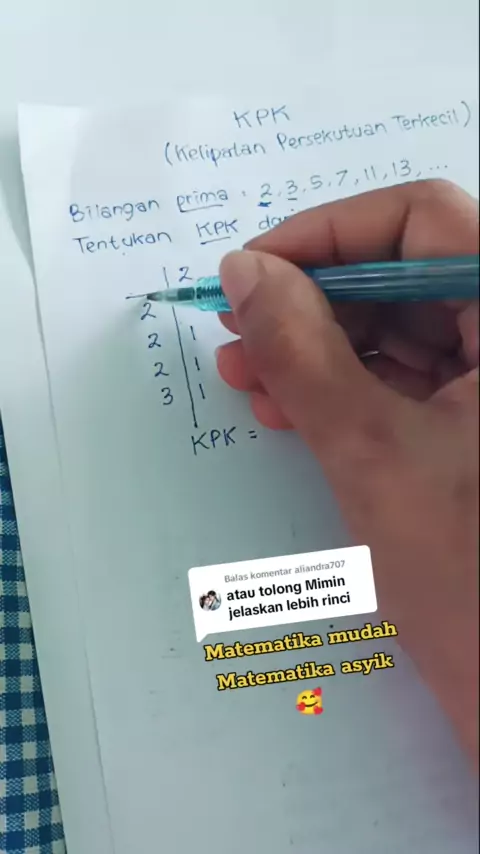 KPK
(Kelipatan Persekutuan Terkecil)
Bilangan prima : 2, 3, 5, 7, 11, 13, ...
Tentukan KPK dari
2
2
2 1
2 1
3 1
KPK =
Balas komentar aliandra707
atau tolong Mimin
jelaskan lebih rinci
Matematika mudah
Matematika asyik